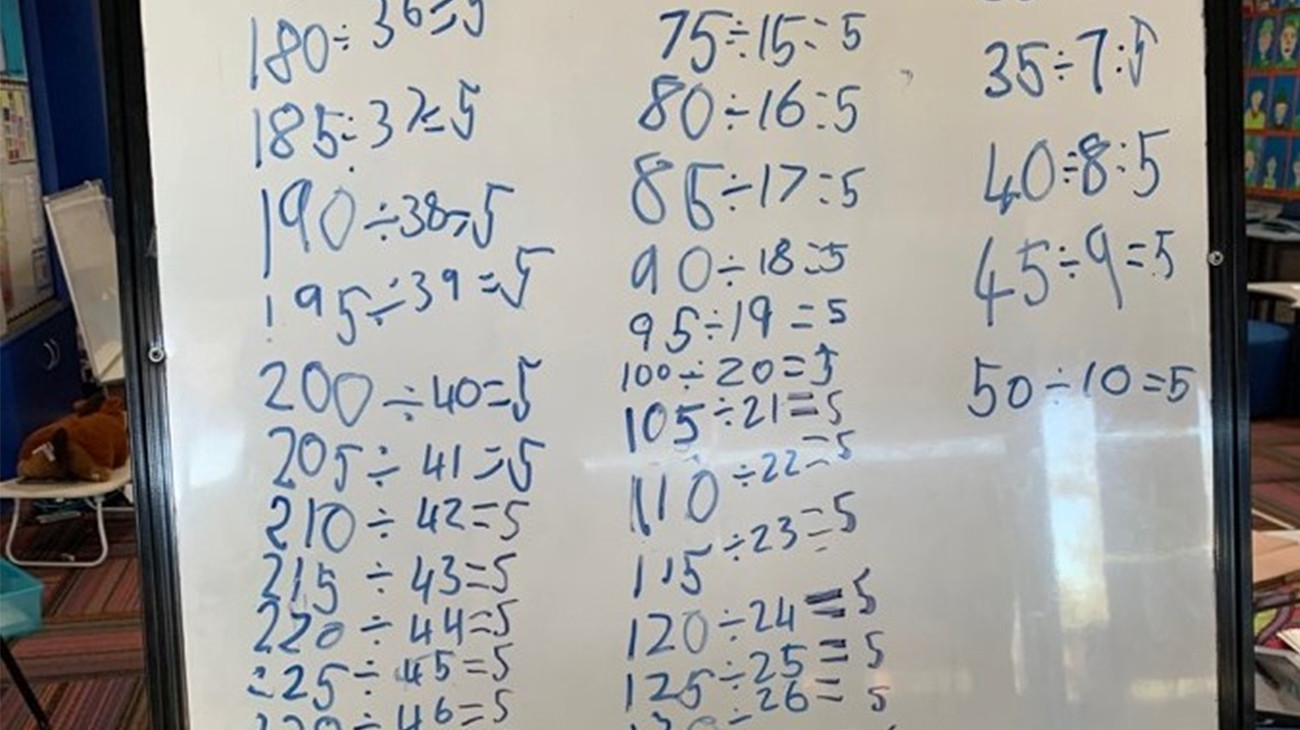 180÷36=5
185÷37=5
190÷38=5
195÷39=5
200÷40=5
205÷41=5
210÷42=5
215÷43=5
220÷44=5
225÷45=5
÷46=5
75÷15=5
80÷16=5
85÷17=5
90÷18=5
95÷19=5
100÷20=5
105÷21=5
110÷22=5
115÷23=5
120÷24=5
125÷25=5
÷26=5
35÷7=5
40÷8=5
45÷9=5
50÷10=5